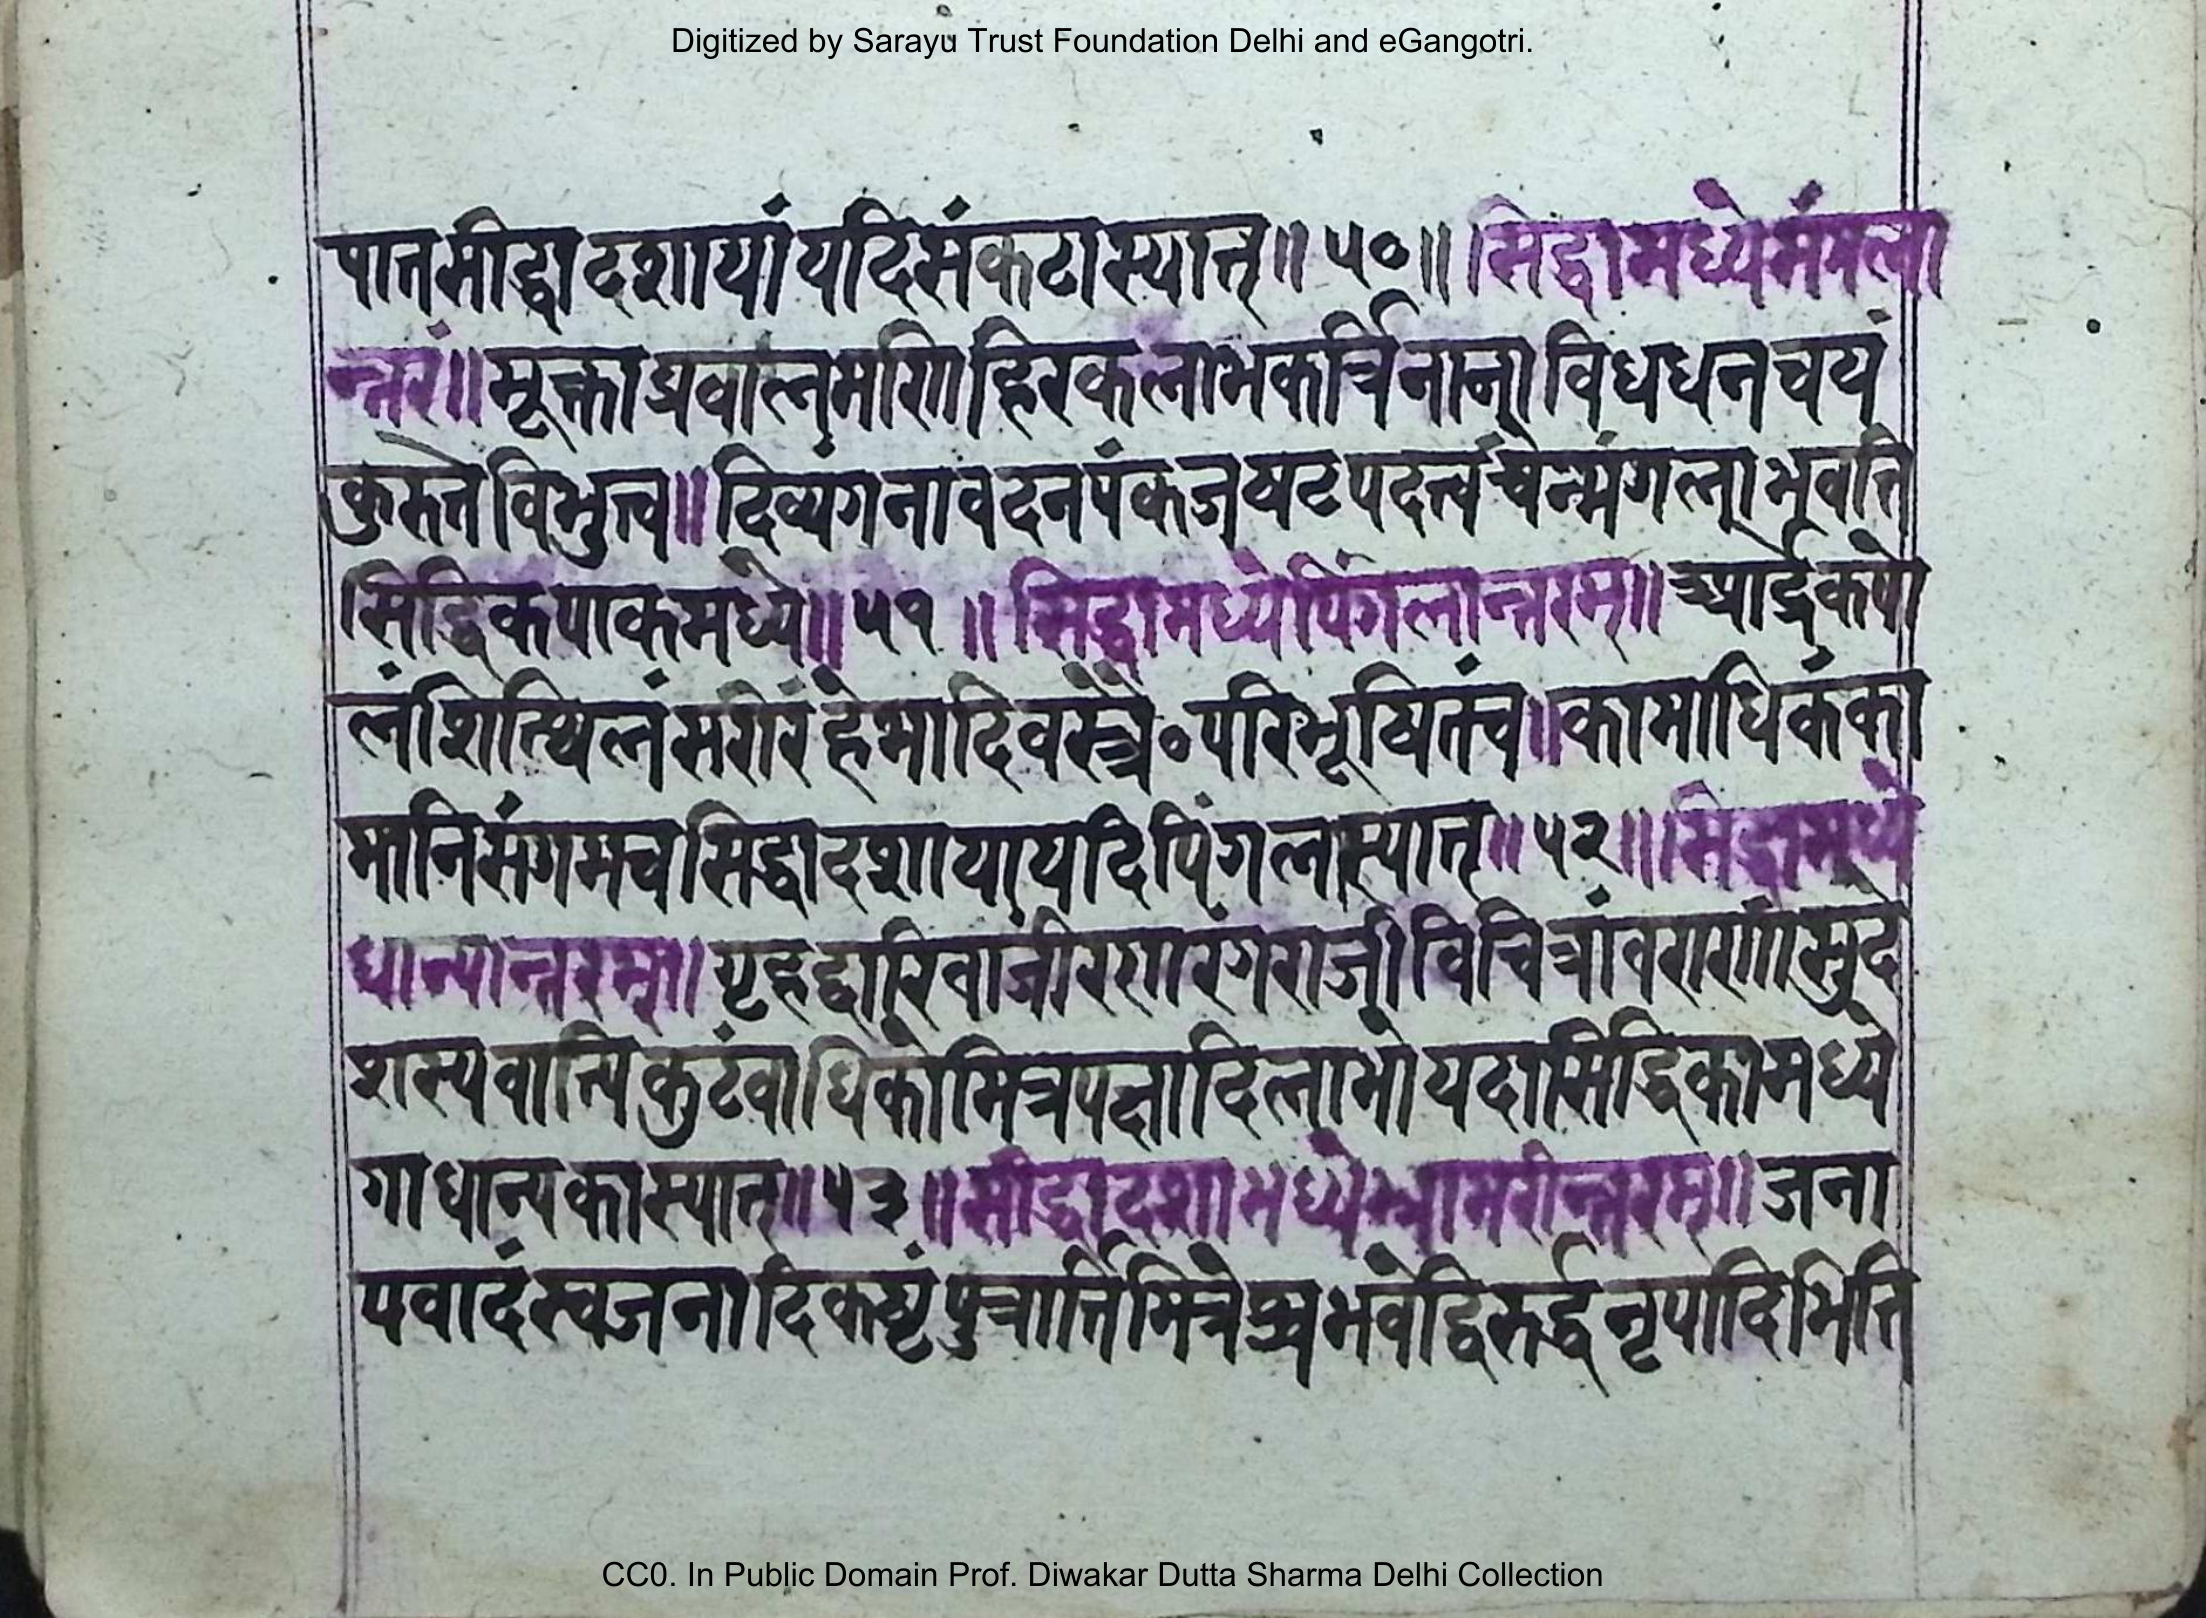 Digitized by Sarayu Trust Foundation Delhi and eGangotri.
पातसीद्धादशायां यदिसंकटास्यात्॥५०॥सिद्धामध्येमंगला
न्तरं॥मूक्ताप्रवालमणिहिरकलाभकर्त्रिनानाविधधनचयं
कुरुतेविभुत्व॥दिव्यंगनावदनपंकजषटपदत्वंचेन्मंगलाभवति
सिद्धिकपाकमध्ये॥५१॥सिद्धामध्येपिंगलान्तरम्॥आर्द्रकपो
लंशित्थिलंसरीरंहेमादिवस्त्रै॰परिभूषितंच॥कामाधिकंका
मानिसंगमचसिद्धादशायायदिपिंगलास्यात्॥५२॥सिद्धामध्ये
धान्यान्तरम्॥गृहद्वारिवाजीरणरंगराजीविचित्रांवराणांमुदे
शस्यवान्पिकुटंवाधिकोमित्रपक्षादिलाभोयदासिद्धिकामध्ये
गाधान्यकास्यात्॥५३॥सीद्धादशामध्येभ्रामरीन्तरम्॥जना
पवादंस्वजनादिकष्टंपुत्रार्त्तिमित्रेप्रभवेद्विरुर्द्धनृपादिभित्ति
CC0. In Public Domain Prof. Diwakar Dutta Sharma Delhi Collection